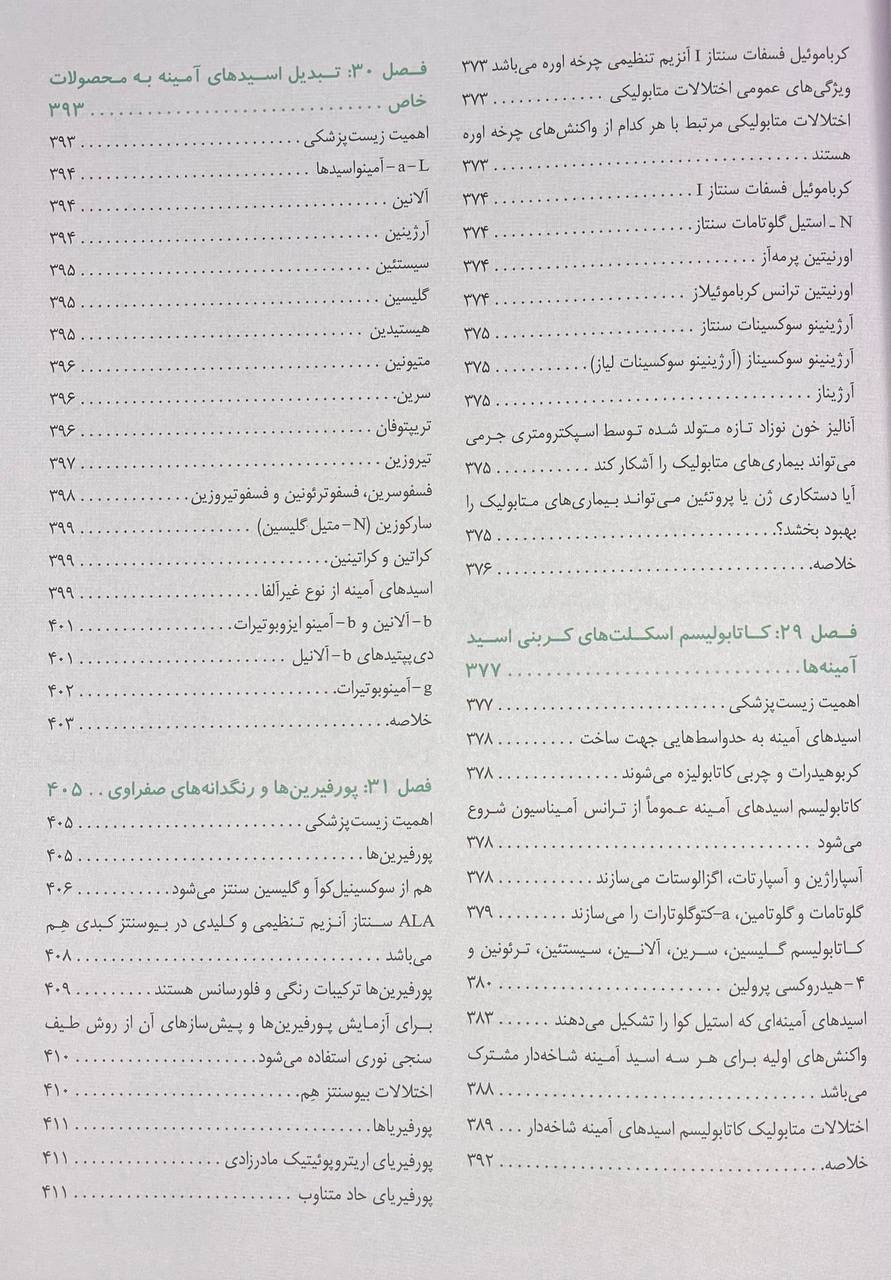 کرباموئیل فسفات سنتاز I آنزیم تنظیمی چرخه اوره می‌باشد ۳۷۳
ویژگی‌های عمومی اختلالات متابولیکی ............. ۳۷۳
اختلالات متابولیکی مرتبط با هر کدام از واکنش‌های چرخه اوره
هستند .................................... ۳۷۳
کرباموئیل فسفات سنتاز I ........................ ۳۷۴
N ـ استیل گلوتامات سنتاز ....................... ۳۷۴
اورنیتین پرمه‌آز .............................. ۳۷۴
اورنیتین ترانس کرباموئیلاز ...................... ۳۷۴
آرژینینو سوکسینات سنتاز ....................... ۳۷۵
آرژینینو سوکسیناز (آرژینینو سوکسینات لیاز) ........... ۳۷۵
آرژیناز .................................... ۳۷۵
آنالیز خون نوزاد تازه متولد شده توسط اسپکترومتری جرمی
می‌تواند بیماری‌های متابولیک را آشکار کند ........... ۳۷۵
آیا دستکاری ژن یا پروتئین می‌تواند بیماری‌های متابولیک را
بهبود بخشد؟ ................................ ۳۷۵
خلاصه .................................... ۳۷۶
فصل ۲۹: کاتابولیسم اسکلت‌های کربنی اسید
آمینه‌ها ................................. ۳۷۷
اهمیت زیست‌پزشکی ........................... ۳۷۷
اسیدهای آمینه به حدواسط‌هایی جهت ساخت ......... ۳۷۸
کربوهیدرات و چربی کاتابولیزه می‌شوند .............. ۳۷۸
کاتابولیسم اسیدهای آمینه عموماً از ترانس آمیناسیون شروع
می‌شود .................................... ۳۷۸
آسپاراژین و آسپارتات، اگزالوستات می‌سازند ........... ۳۷۸
گلوتامات و گلوتامین، a-کتوگلوتارات را می‌سازند ........ ۳۷۹
کاتابولیسم گلیسین، سرین، آلانین، سیستئین، ترئونین و
۴-هیدروکسی پرولین .......................... ۳۸۰
اسیدهای آمینه‌ای که استیل کوا را تشکیل می‌دهند ...... ۳۸۳
واکنش‌های اولیه برای هر سه اسید آمینه شاخه‌دار مشترک
می‌باشد .................................... ۳۸۸
اختلالات متابولیک کاتابولیسم اسیدهای آمینه شاخه‌دار ... ۳۸۹
خلاصه .................................... ۳۹۲
فصل ۳۰: تبدیل اسیدهای آمینه به محصولات
خاص ................................. ۳۹۳
اهمیت زیست‌پزشکی ........................... ۳۹۳
a-L-آمینواسیدها ............................ ۳۹۴
آلانین .................................... ۳۹۴
آرژینین ................................... ۳۹۴
سیستئین .................................. ۳۹۵
گلیسین ................................... ۳۹۵
هیستیدین ................................. ۳۹۵
متیونین ................................... ۳۹۶
سرین ..................................... ۳۹۶
تریپتوفان .................................. ۳۹۶
تیروزین ................................... ۳۹۷
فسفوسرین، فسفوترئونین و فسفوتیروزین ............. ۳۹۸
سارکوزین (N-متیل گلیسین) ..................... ۳۹۹
کراتین و کراتینین ............................. ۳۹۹
اسیدهای آمینه از نوع غیرآلفا ..................... ۳۹۹
b-آلانین و b-آمینو ایزوبوتیرات .................... ۴۰۱
دی‌پپتیدهای b-آلانیل ......................... ۴۰۱
g-آمینوبوتیرات ............................... ۴۰۲
خلاصه .................................... ۴۰۳
فصل ۳۱: پورفیرین‌ها و رنگدانه‌های صفراوی .. ۴۰۵
اهمیت زیست‌پزشکی ........................... ۴۰۵
پورفیرین‌ها ................................. ۴۰۵
هم از سوکسینیل‌کوآ و گلیسین سنتز می‌شود ........... ۴۰۶
ALA سنتاز آنزیم تنظیمی و کلیدی در بیوسنتز کبدی هِم
می‌باشد .................................... ۴۰۸
پورفیرین‌ها ترکیبات رنگی و فلورسانس هستند ......... ۴۰۹
برای آزمایش پورفیرین‌ها و پیش‌سازهای آن از روش طیف
سنجی نوری استفاده می‌شود ..................... ۴۱۰
اختلالات بیوسنتز هِم .......................... ۴۱۰
پورفیریاها .................................. ۴۱۱
پورفیریای اریتروپوئیتیک مادرزادی ................. ۴۱۱
پورفیریای حاد متناوب .......................... ۴۱۱